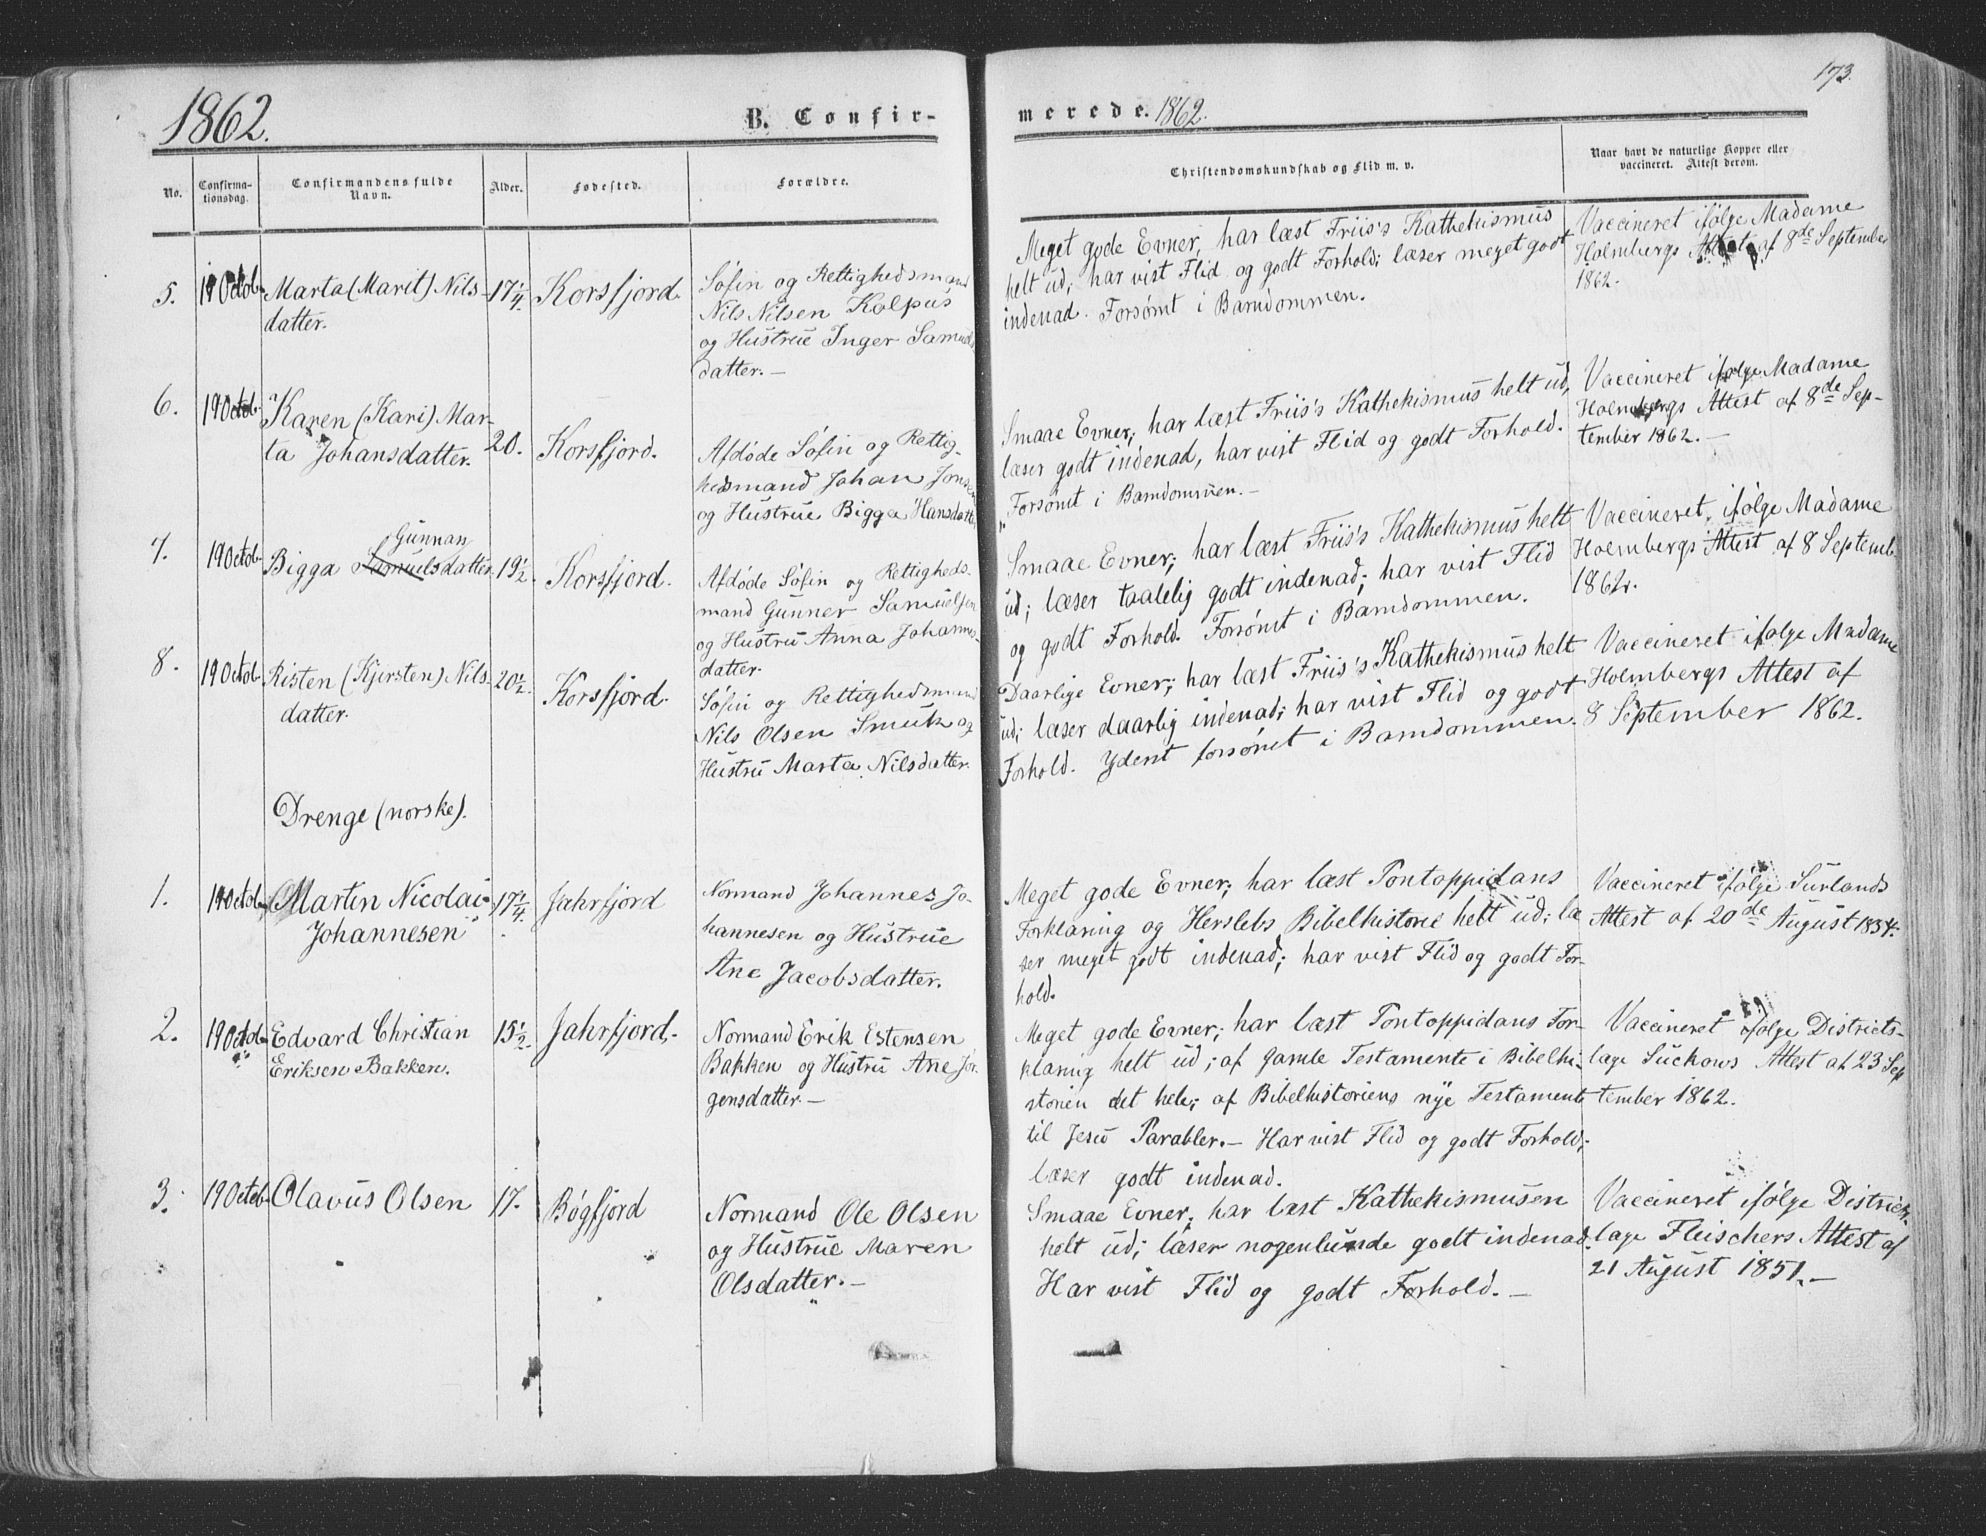 1862.
B. Confir-
No.
Confirma-
tionsdag.
Confirmandens fulde
Navn.
Alder.
Fødested.
Forældre.
5.
19 Octob.
Marta (Marit) Nils-
datter.
17 1/4
Korsfjord.
Søfin og Rettighedsmand
Nils Nilsen Kolpus
og Hustrue Inger Samuels
datter.—
6.
19 Octob.
Karen (Kari) Mar-
ta Johansdatter.
20.
Korsfjord.
Afdøde Søfin og Rettig-
hedsmand Johan Jonsen
og Hustrue Bigga Hansdatter
7.
19 Octob.
Gunnar
Bigga Samuelsdatter.
19 1/2.
Korsfjord.
Afdøde Søfin og Rettigheds-
mand Gunner Samuelsen
og Hustru Anna Johannes-
datter.
8.
19 Octob.
Risten (Kjersten) Nils-
datter.
20 1/2.
Korsfjord.
Søfin og Rettighedsmand
Nils Olsen Smuk og
Hustru Marta Nilsdatter.
Drenge (norske).
1.
19 Octob.
Martin Nicolai
Johannesen
Jahrfjord
Normand Johannes Jo-
hannesen og Hustrue
Ane Jacobsdatter.
2.
19 Octob.
Edvard Christian
Eriksen Bakken.
15 1/2.
Jahrfjord.
Normand Erik Estensen
Bakken og Hustru Ane Jør-
gensdatter.—
3.
19 Octob.
Olavus Olsen
17.
Bøgfjord
Normand Ole Olsen
og Hustrue Maren
Olsdatter.—
173.
merede. 1862.
Christendomskundskab og Flid m. v.
Naar havt de naturlige Kopper eller
vaccineret. Attest derom.
Meget gode Evner, har læst Friis's Kathekismus
helt ud; har vist Flid og godt Forhold; læser meget godt
indenad. Forsømt i Barndommen.
Vaccineret ifølge Madame
Holmbergs Attest af 8de September
1862.
Smaae Evner; har læst Friis's Kathekismus helt ud,
læser godt indenad, har vist Flid og godt Forhold.
Forsømt i Barndommen.—
Vaccineret ifølge Madame
Holmbergs Attest af 8de Sep-
tember 1862.—
Smaae Evner; har læst Friis's Kathekismus helt
ud; læser taalelig godt indenad; har vist Flid
og godt Forhold. Forsømt i Barndommen.
Vaccineret ifølge Madame
Holmbergs Attest af 8 Septemb.
1862.
Daarlige Evner; har læst Friis's Kathekismus helt
ud; læser daarlig indenad; har vist Flid og godt
Forhold. Yderst forsømt i Barndommen.
Vaccineret ifølge Madame
Holmbergs Attest af
8 September 1862.
Meget gode Evner; har læst Pontoppidans
Forklaring og Herslebs Bibelhistorie helt ud; læ
ser meget godt indenad; har vist Flid og godt For-
hold.
Vaccineret ifølge Surlands
Attest af 20de August 1854.
Meget gode Evner; har læst Pontoppidans For-
klaring helt ud; af gamle Testamente i Bibelhi-
storien det hele; af Bibelhistoriens nye Testamente
til Jesu Parabler.— Har vist Flid og godt Forhold;
læser godt indenad.
Vaccineret ifølge Districts-
læge Suckows Attest af 23 Sep
tember 1862.
Smaae Evner; har læst Kathekismusen
helt ud; læser nogenlunde godt indenad.
Har vist Flid og godt Forhold.—
Vaccineret ifølge Districts-
læge Fleischers Attest af
21 August 1851.—